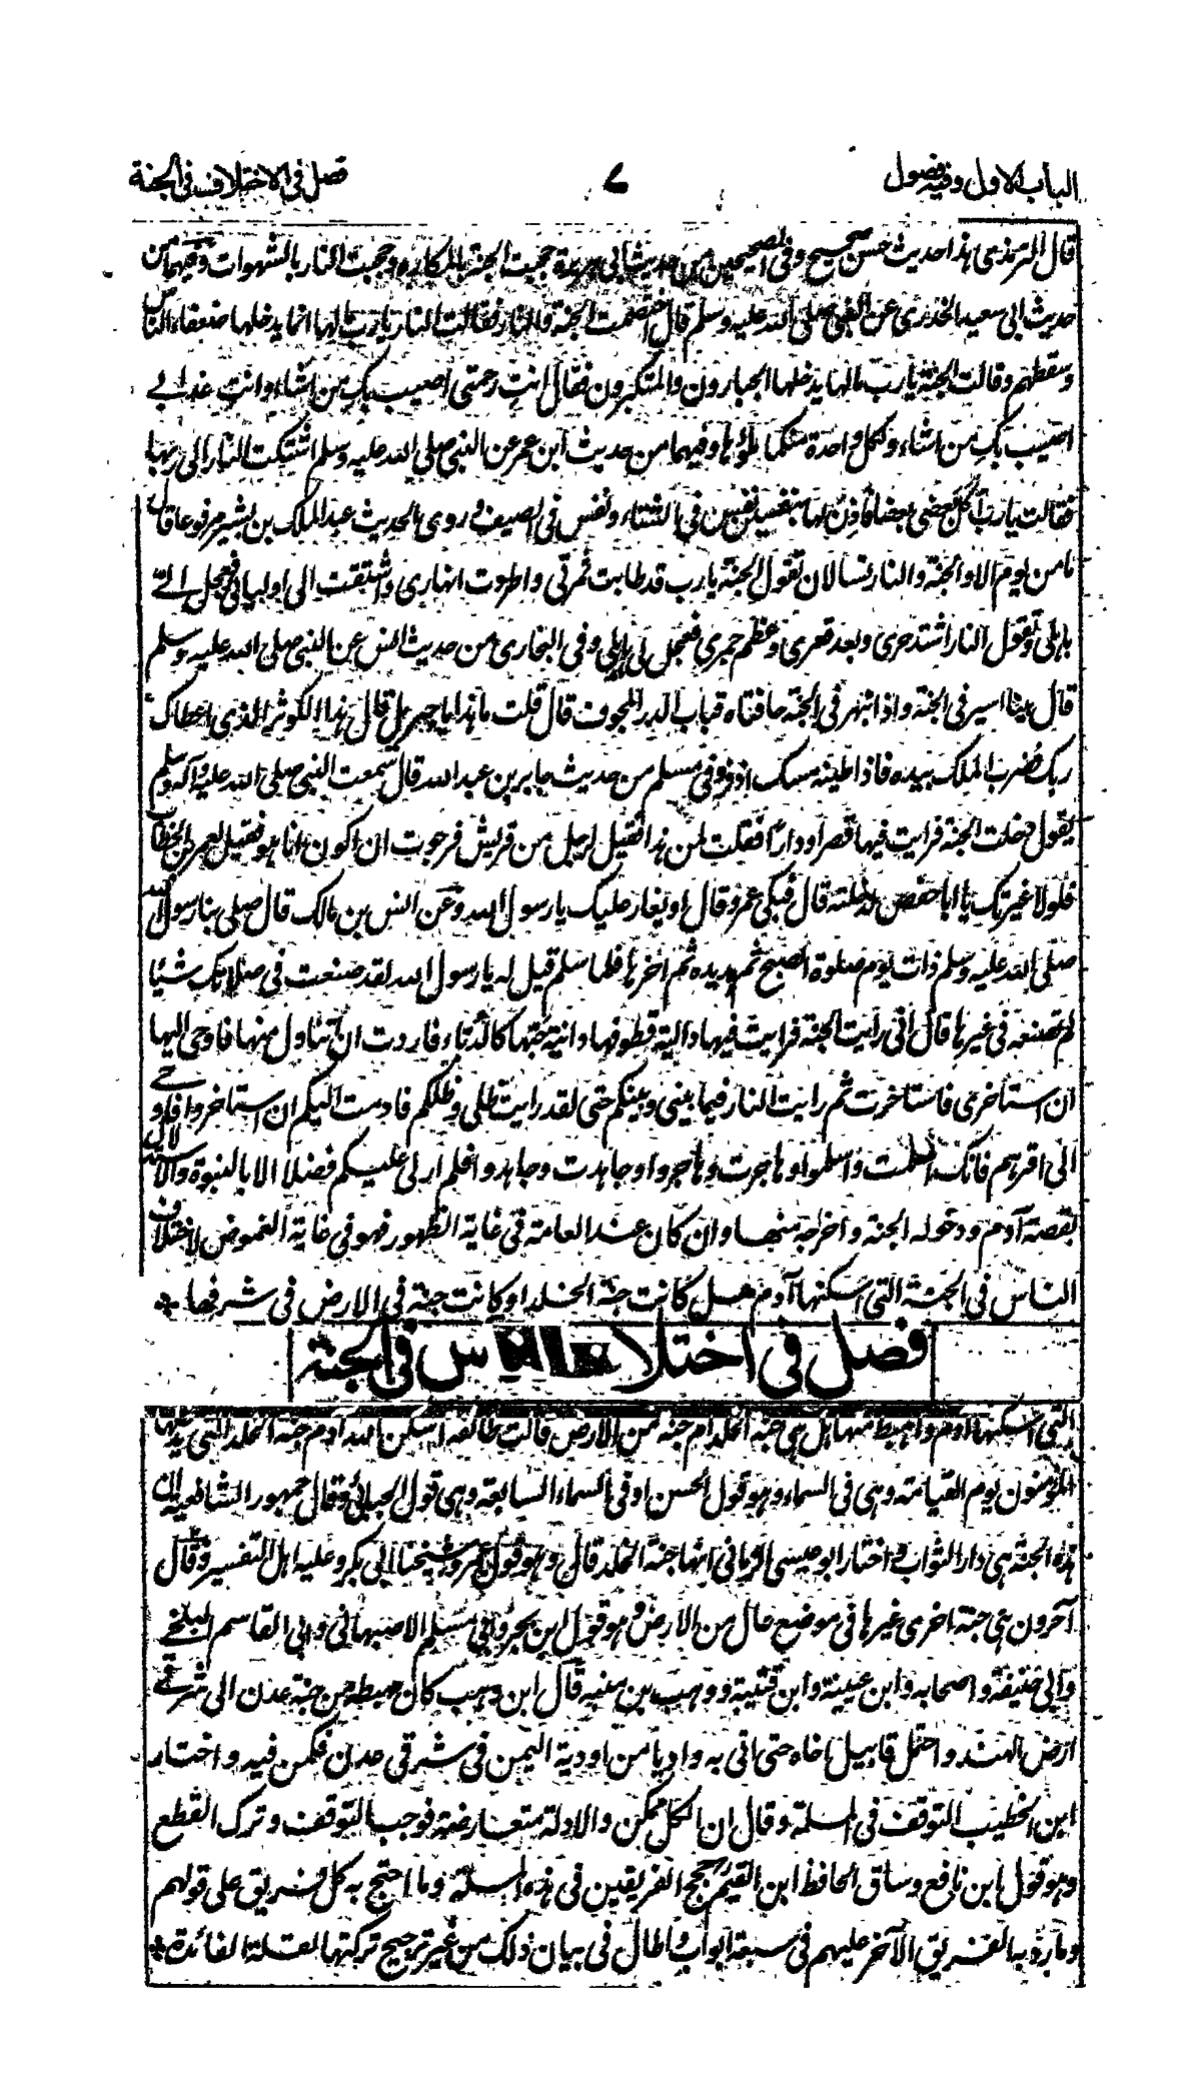 الباب الاول وفيه فصول
٧
فصل فى الاختلاف فى الجنة
قال الترمذى هذا حديث حسن صحيح وفى الصحيحين من حديث ابى هريرة حجبت الجنة بالمكاره وحجبت النار بالشهوات وفيهما من
حديث ابى سعيد الخدرى عن النبى صلى الله عليه وسلم قال اختصمت الجنة والنار فقالت النار يا رب مالها انما يدخلها ضعفاء الناس
وسقطهم وقالت الجنة يا رب مالها يدخلها الجبارون والمتكبرون فقال انت رحمتى اصيب بك من اشاء وانت عذابى
اصيب بك من اشاء ولكل واحدة منكما ملؤها وفيهما من حديث ابن عمر عن النبى صلى الله عليه وسلم اشتكت النار الى ربها
فقالت يا رب اكل بعضى بعضا فاذن لها بنفسين نفس فى الشتاء ونفس فى الصيف وروى الحديث عبد الملك بن بشير مرفوعا قال
ما من يوم الا والجنة والنار تسالان تقول الجنة يا رب قد طابت ثمرتى واطردت انهارى واشتقت الى اوليائى فعجل الى
باهلى وتقول النار اشتد حرى وبعد قعرى وعظم جمرى فعجل لى باهلى وفى البخارى من حديث انس عن النبى صلى الله عليه وسلم
قال بينا اسير فى الجنة واذا نهر فى الجنة حافتاه قباب الدر المجوف قال قلت ما هذا يا جبريل قال هذا الكوثر الذى اعطاك
ربك فضرب الملك بيده فاذا طينه مسك اذفر وفى مسلم من حديث جابر بن عبد الله قال سمعت النبى صلى الله عليه وآله وسلم
يقول دخلت الجنة فرايت فيها قصرا ودارا فقلت لمن هذا فقيل لرجل من قريش فرجوت ان اكون انا هو فقيل لعمر بن الخطاب
فلولا غيرتك يا ابا حفص لدخلته قال فبكى عمر وقال او يغار عليك يا رسول الله وعن انس بن مالك قال صلى بنا رسول الله
صلى الله عليه وسلم ذات يوم صلوة الصبح ثم مد يده ثم اخرها فلما سلم قيل له يا رسول الله لقد صنعت فى صلاتك شيئا
لم تصنعه فى غيرها قال انى رايت الجنة فرايت فيها دالية قطوفها دانية حبها كالدباء فاردت ان اتناول منها فاوحى اليها
ان استاخرى فاستاخرت ثم رايت النار فيما بينى وبينكم حتى لقد رايت ظلى وظلكم فاومت اليكم ان استاخروا فاوحى
الى اقرهم فانك اسلمت واسلموا وهاجرت وهاجروا وجاهدت وجاهدوا فلم ار لى عليكم فضلا الا بالنبوة والاستدلال
بقصة آدم ودخوله الجنة واخراجه منها وان كان عند العامة فى غاية الظهور فهو فى غاية الغموض لاختلاف
الناس فى الجنة التى اسكنها آدم هل كانت جنة الخلد او كانت جنة فى الارض فى شرفها *
فصل فى اختلاف الناس فى الجنة
التى اسكنها آدم واهبط منها هل هى جنة الخلد ام جنة من الارض قالت طائفة اسكن الله آدم جنة الخلد التى يدخلها
المؤمنون يوم القيامة وهى فى السماء وهو قول الحسن او فى السماء السابعة وهى قول الجبائى وقال جمهور الشافعية ان
هذه الجنة هى دار الثواب واختار ابو عيسى الرمانى انها جنة الخلد قال وهو قول عمرو وشيخنا ابى بكر وعليه اهل التفسير وقال
آخرون هى جنة اخرى غيرها فى موضع عال من الارض وهو قول ابن بحر وابى مسلم الاصبهانى وابى القاسم البلخى
وابى حنيفة واصحابه وابن عيينة وابن قتيبة ووهب بن منبه قال ابن وهب كان مهبطه من جنة عدن الى شرقى
ارض الهند واحتمل قابيل اخاه حتى اتى به واديا من اودية اليمن فى شرقى عدن فكمن فيه واختار
ابن الخطيب التوقف فى المسئلة وقال ان الكل ممكن والادلة متعارضة فوجب التوقف وترك القطع
وهو قول ابن نافع وساق الحافظ ابن القيم حجج الفريقين فى هذه المسئلة وما احتج به كل فريق على قولهم
وما رد به الفريق الآخر عليهم فى سبعة ابواب واطال فى بيان ذلك من غير ترجيح تركتها لقلة الفائدة *